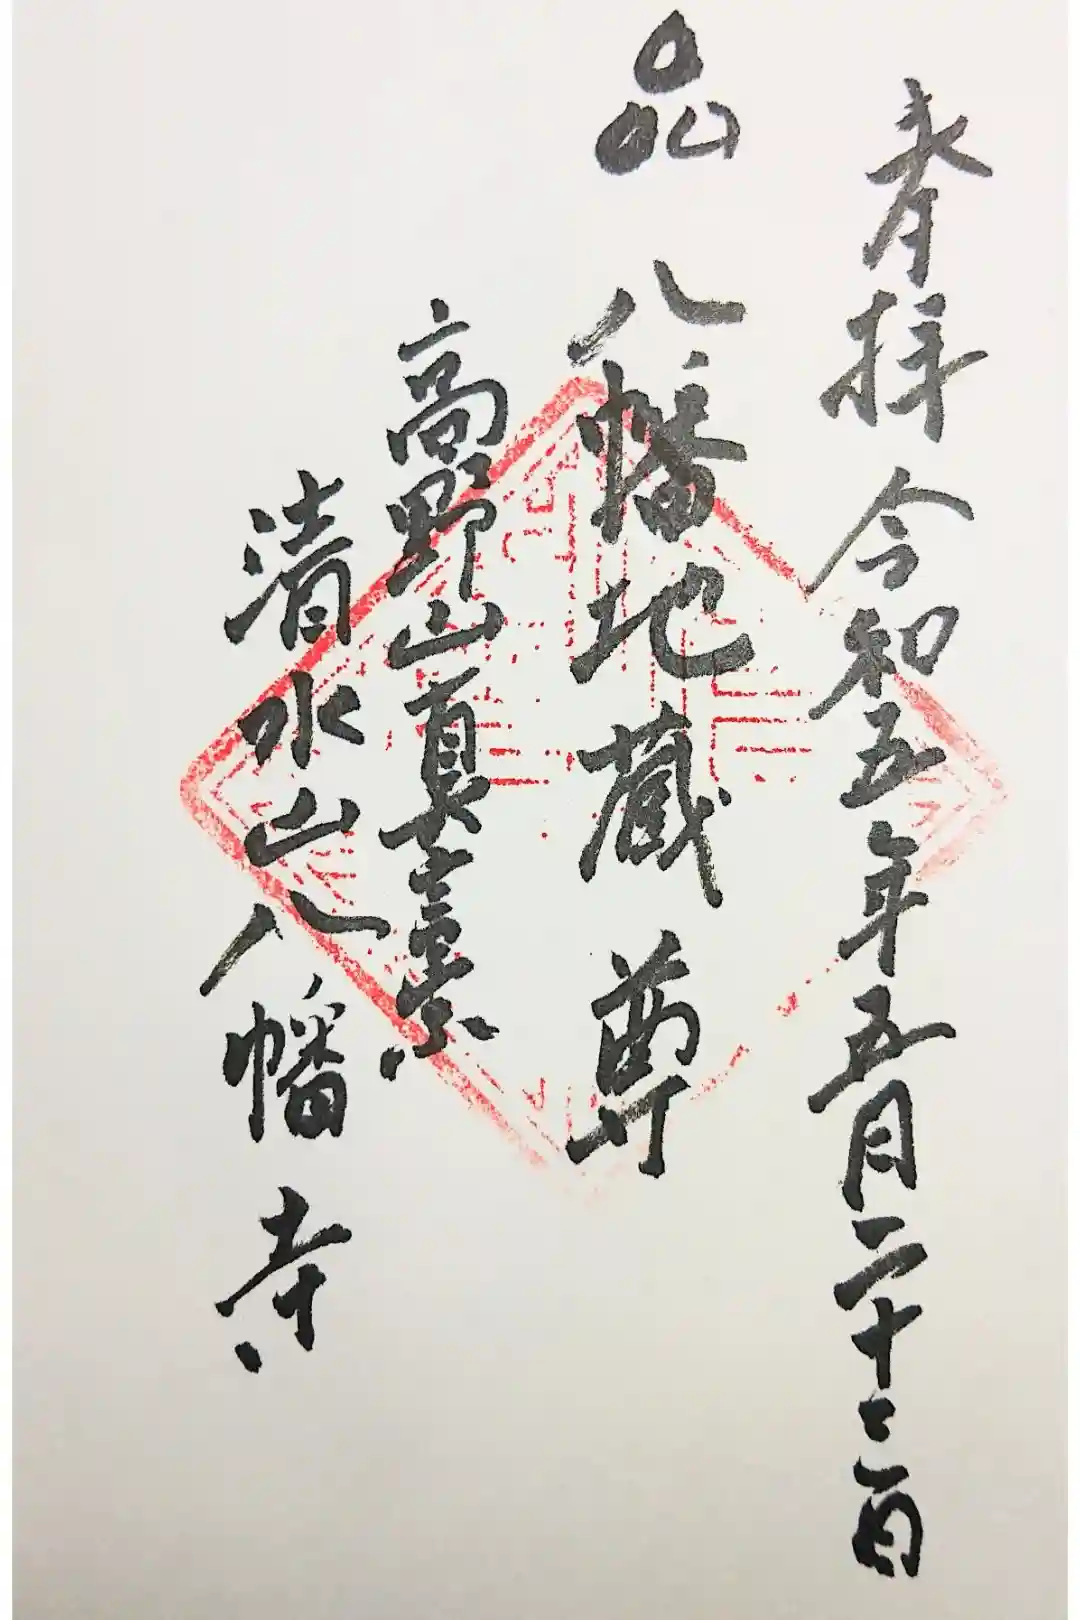 奉拝 令和五年五月二十三日
八幡地蔵尊
高野山真言宗
清水山八幡寺